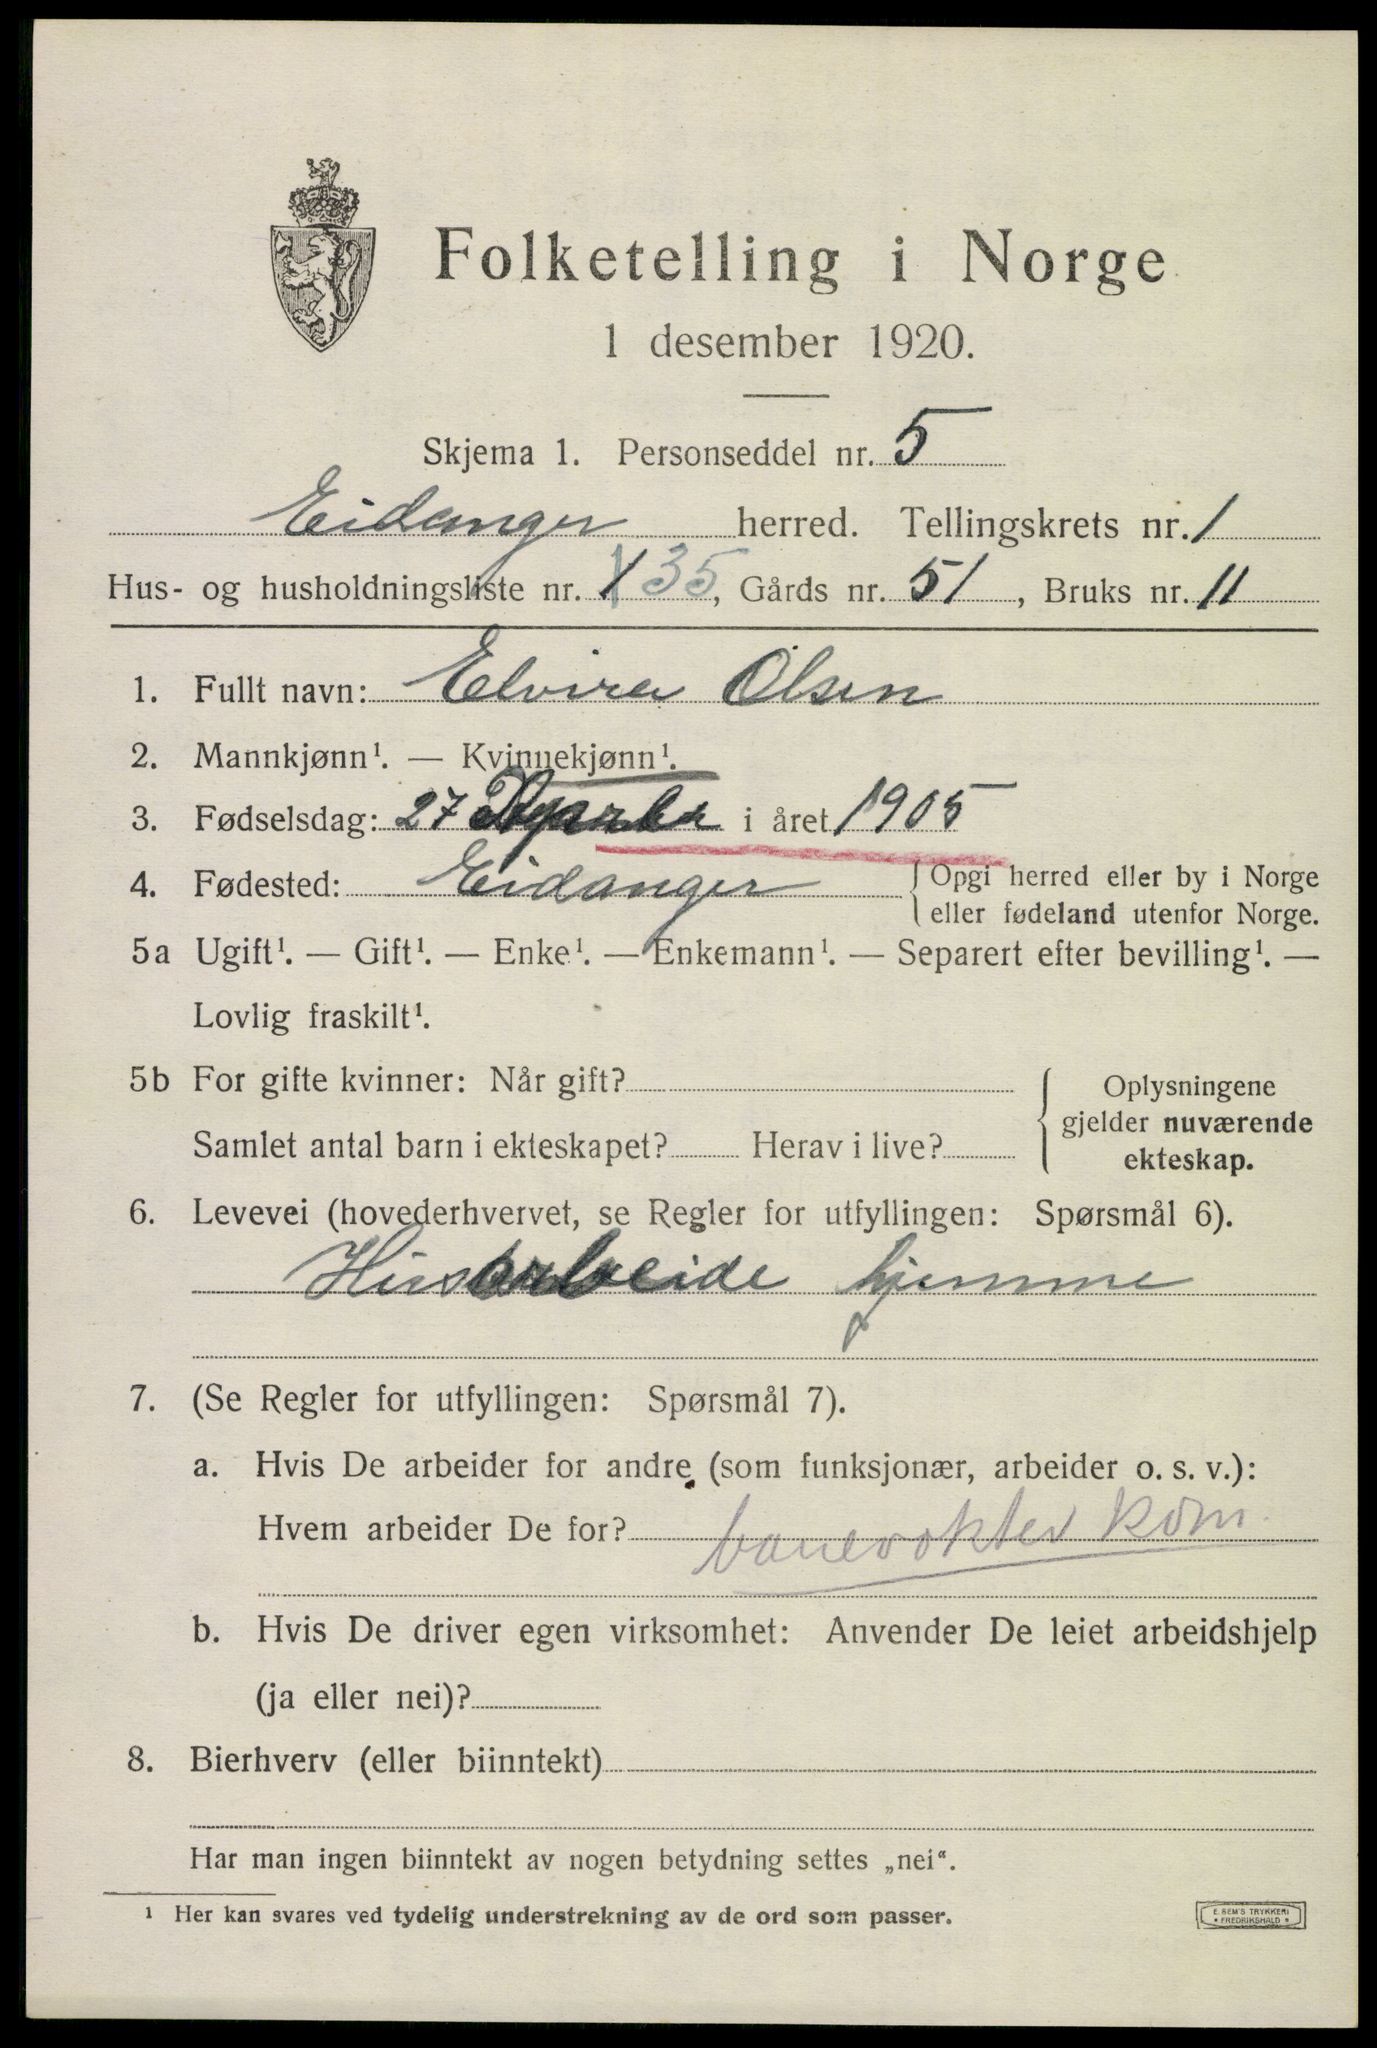 Folketelling i Norge
1 desember 1920.
Skjema 1. Personseddel nr. 5
Eidanger herred. Tellingskrets nr. 1
Hus- og husholdningsliste nr. 1 35, Gårds nr. 51, Bruks nr. 11
1. Fullt navn: Elvira Olsen
2. Mannkjønn¹. — Kvinnekjønn¹.
3. Fødselsdag: 27 i året 1905
4. Fødested: Eidanger {Opgi herred eller by i Norge
eller fødeland utenfor Norge.
5a Ugift¹. — Gift¹. — Enke¹. — Enkemann¹. — Separert efter bevilling¹. —
Lovlig fraskilt¹.
5b For gifte kvinner: Når gift?
Samlet antal barn i ekteskapet? Herav i live?
{Oplysningene
gjelder nuværende
ekteskap.
6. Levevei (hovederhvervet, se Regler for utfyllingen: Spørsmål 6).
Husarbeide hjemme
7. (Se Regler for utfyllingen: Spørsmål 7).
a. Hvis De arbeider for andre (som funksjonær, arbeider o. s. v.):
Hvem arbeider De for? banevokter kom.
b. Hvis De driver egen virksomhet: Anvender De leiet arbeidshjelp
(ja eller nei)?
8. Bierhverv (eller biinntekt)
Har man ingen biinntekt av nogen betydning settes „nei“.
¹ Her kan svares ved tydelig understrekning av de ord som passer.
E. SEM'S TRYKKERI
* FREDRIKSHALD *